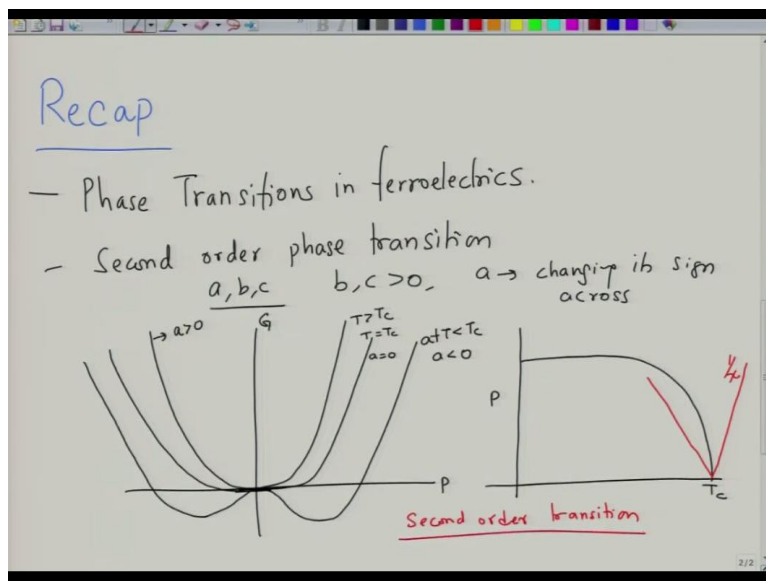 B I
Recap
— Phase Transitions in ferroelectrics.
— Second order phase transition
a, b, c b, c >0, a → changing its sign
across
→ a>0
G
T>Tc
T=Tc
a=0
at T<Tc
a<0
P
P
1/χ
Tc
Second order transition
2/2